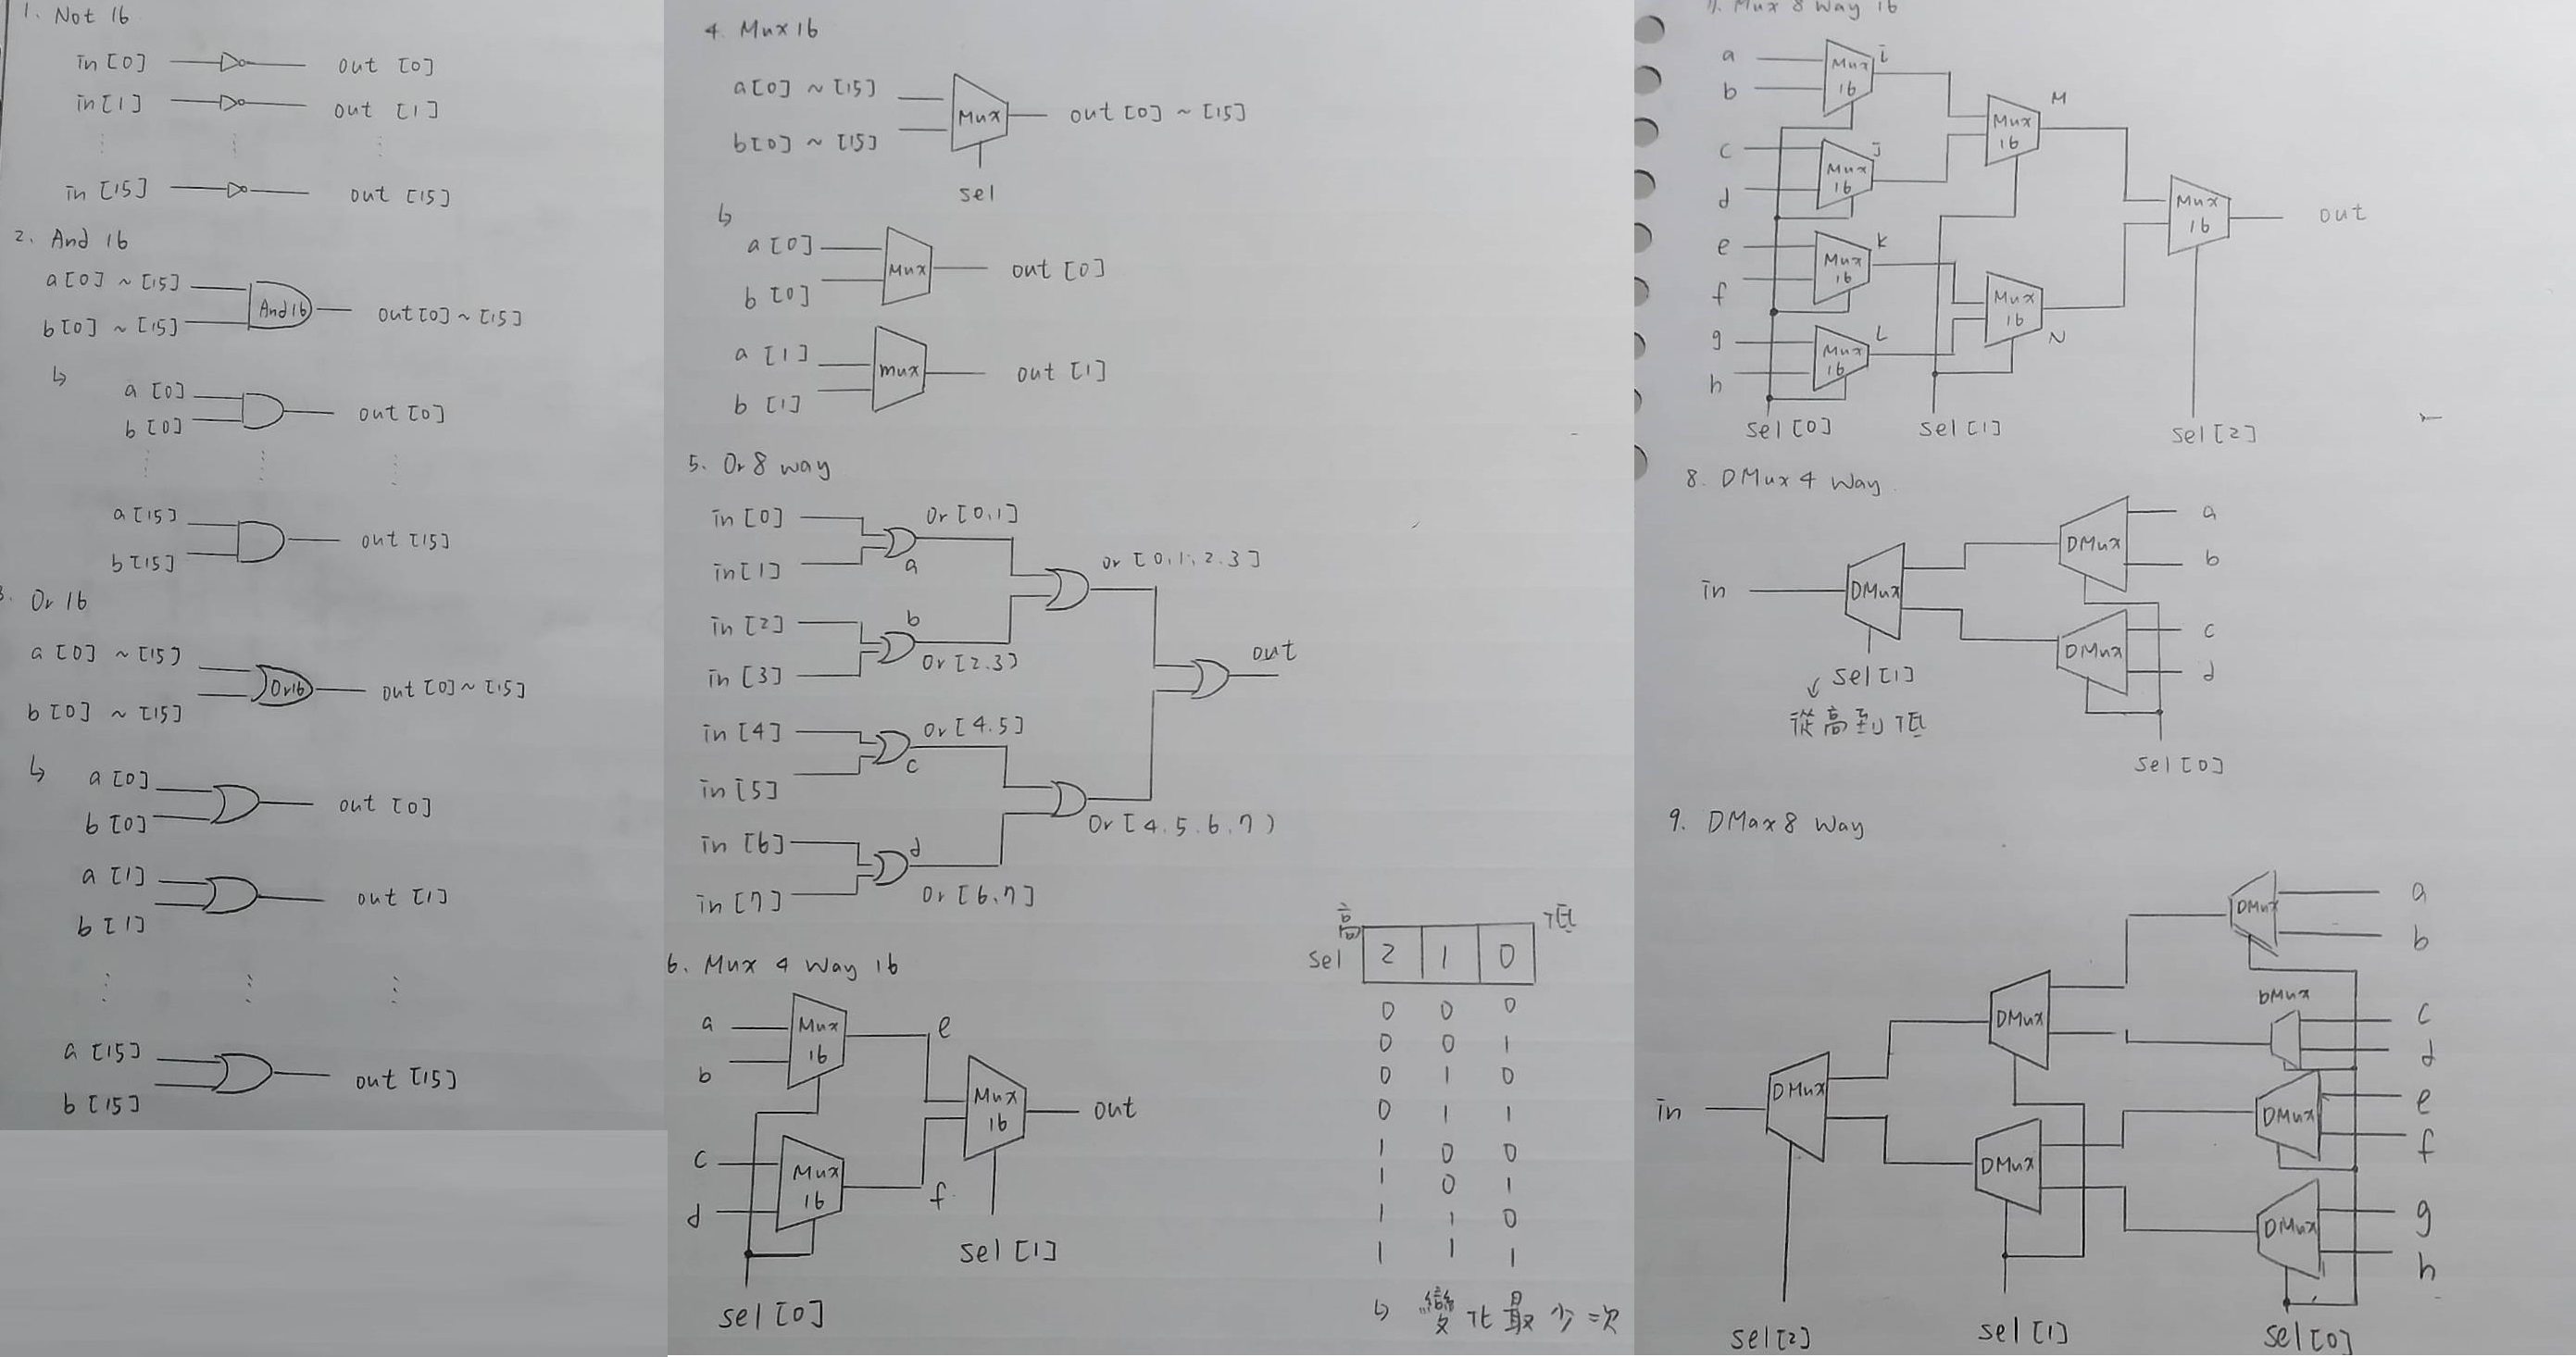 1. Not 16
in [0] out [0]
in [1] out [1]
in [15] out [15]
2. And 16
a [0] ~ [15]
And 16
out [0] ~ [15]
b [0] ~ [15]
a [0]
b [0]
out [0]
a [15]
b [15]
out [15]
3. Or 16
a [0] ~ [15]
Or 16
out [0] ~ [15]
b [0] ~ [15]
a [0]
b [0]
out [0]
a [1]
b [1]
out [1]
a [15]
b [15]
out [15]
4. Mux 16
a [0] ~ [15]
Mux
out [0] ~ [15]
b [0] ~ [15]
sel
a [0]
Mux
out [0]
b [0]
a [1]
mux
out [1]
b [1]
5. Or 8 way
in [0]
Or [0.1]
in [1]
a
or [0.1.2.3]
in [2]
b
in [3]
Or [2.3)
out
in [4]
Or [4.5]
in [5]
c
Or [4.5.6.7)
in [6]
d
in [7]
Or [6.7]
6. Mux 4 Way 16
a
b
Mux 16
e
c
d
Mux 16
f
Mux 16
out
sel [1]
sel [0]
高 低
sel 2 1 0
0 0 0
0 0 1
0 1 0
0 1 1
1 0 0
1 0 1
1 1 0
1 1 1
變化最少=次
7. Mux 8 Way 16
a
b
Mux 16
i
c
d
Mux 16
J
e
f
Mux 16
K
g
h
Mux 16
L
Mux 16
M
Mux 16
N
Mux 16
out
sel [0] sel [1] sel [2]
8. DMux 4 Way
in
DMux
sel [1]
從高到低
DMux
a
b
DMux
c
d
sel [0]
9. DMax 8 Way
in
DMux
DMux
DMux
DMux
a
b
DMux
c
d
DMux
e
f
DMux
g
h
sel [2] sel [1] sel [0]